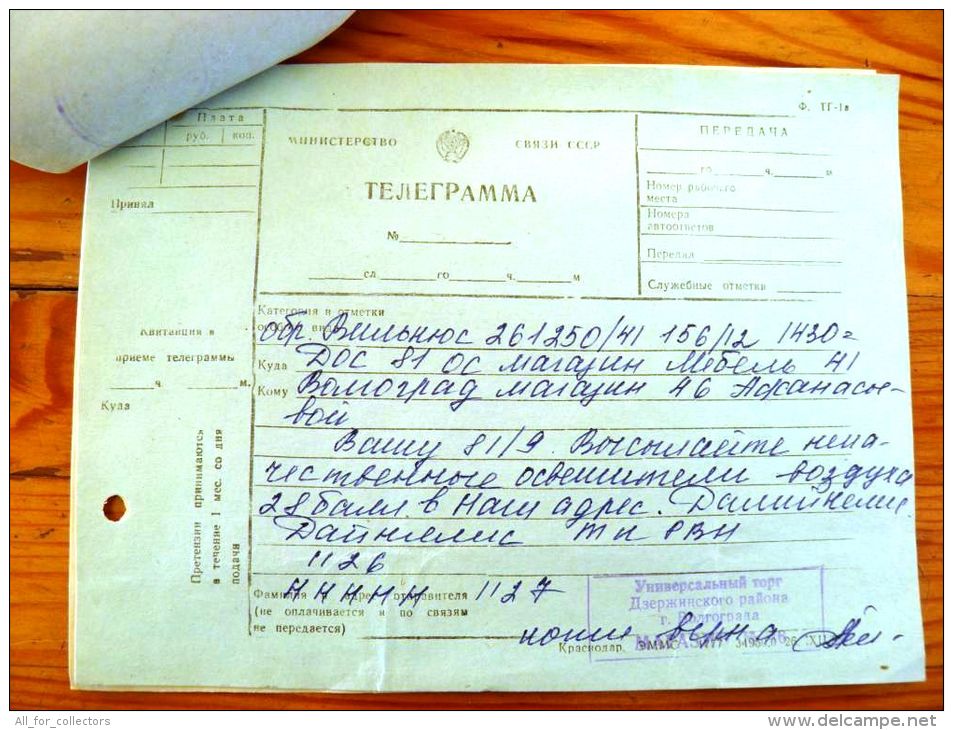 Ф. ТГ-1а
Плата
руб. коп.
Принял
МИНИСТЕРСТВО СВЯЗИ СССР
ТЕЛЕГРАММА
№
сл. го ч. м
ПЕРЕДАЧА
го ч. м
Номер рабочего
места
Номера
автоответов
Передал
Служебные отметки
Квитанция в
приеме телеграммы
ч. м.
Куда
Претензии принимаются
в течение 1 мес. со дня
подачи
Категория и отметки
обр. Вильнюс 261250/41 156/12 1430=
Куда Дос 81 ос магазин Мебель 41
Кому Волгоград магазин 46 Афанасье-
вой
Вашу 81/9. Высылайте нека-
чественные освежители воздуха
28 балл. в наш адрес.
Дайнелис тп РВН
1126
НННН 1127
Фамилия и адрес отправителя
(не оплачивается и по связям
не передается)
Универсальный торг
Дзержинского района
г. Волгограда
МАГАЗИН № 46
копия верна
Краснодар. ЭММС 1977 26 XII
All_for_collectors
www.delcampe.net